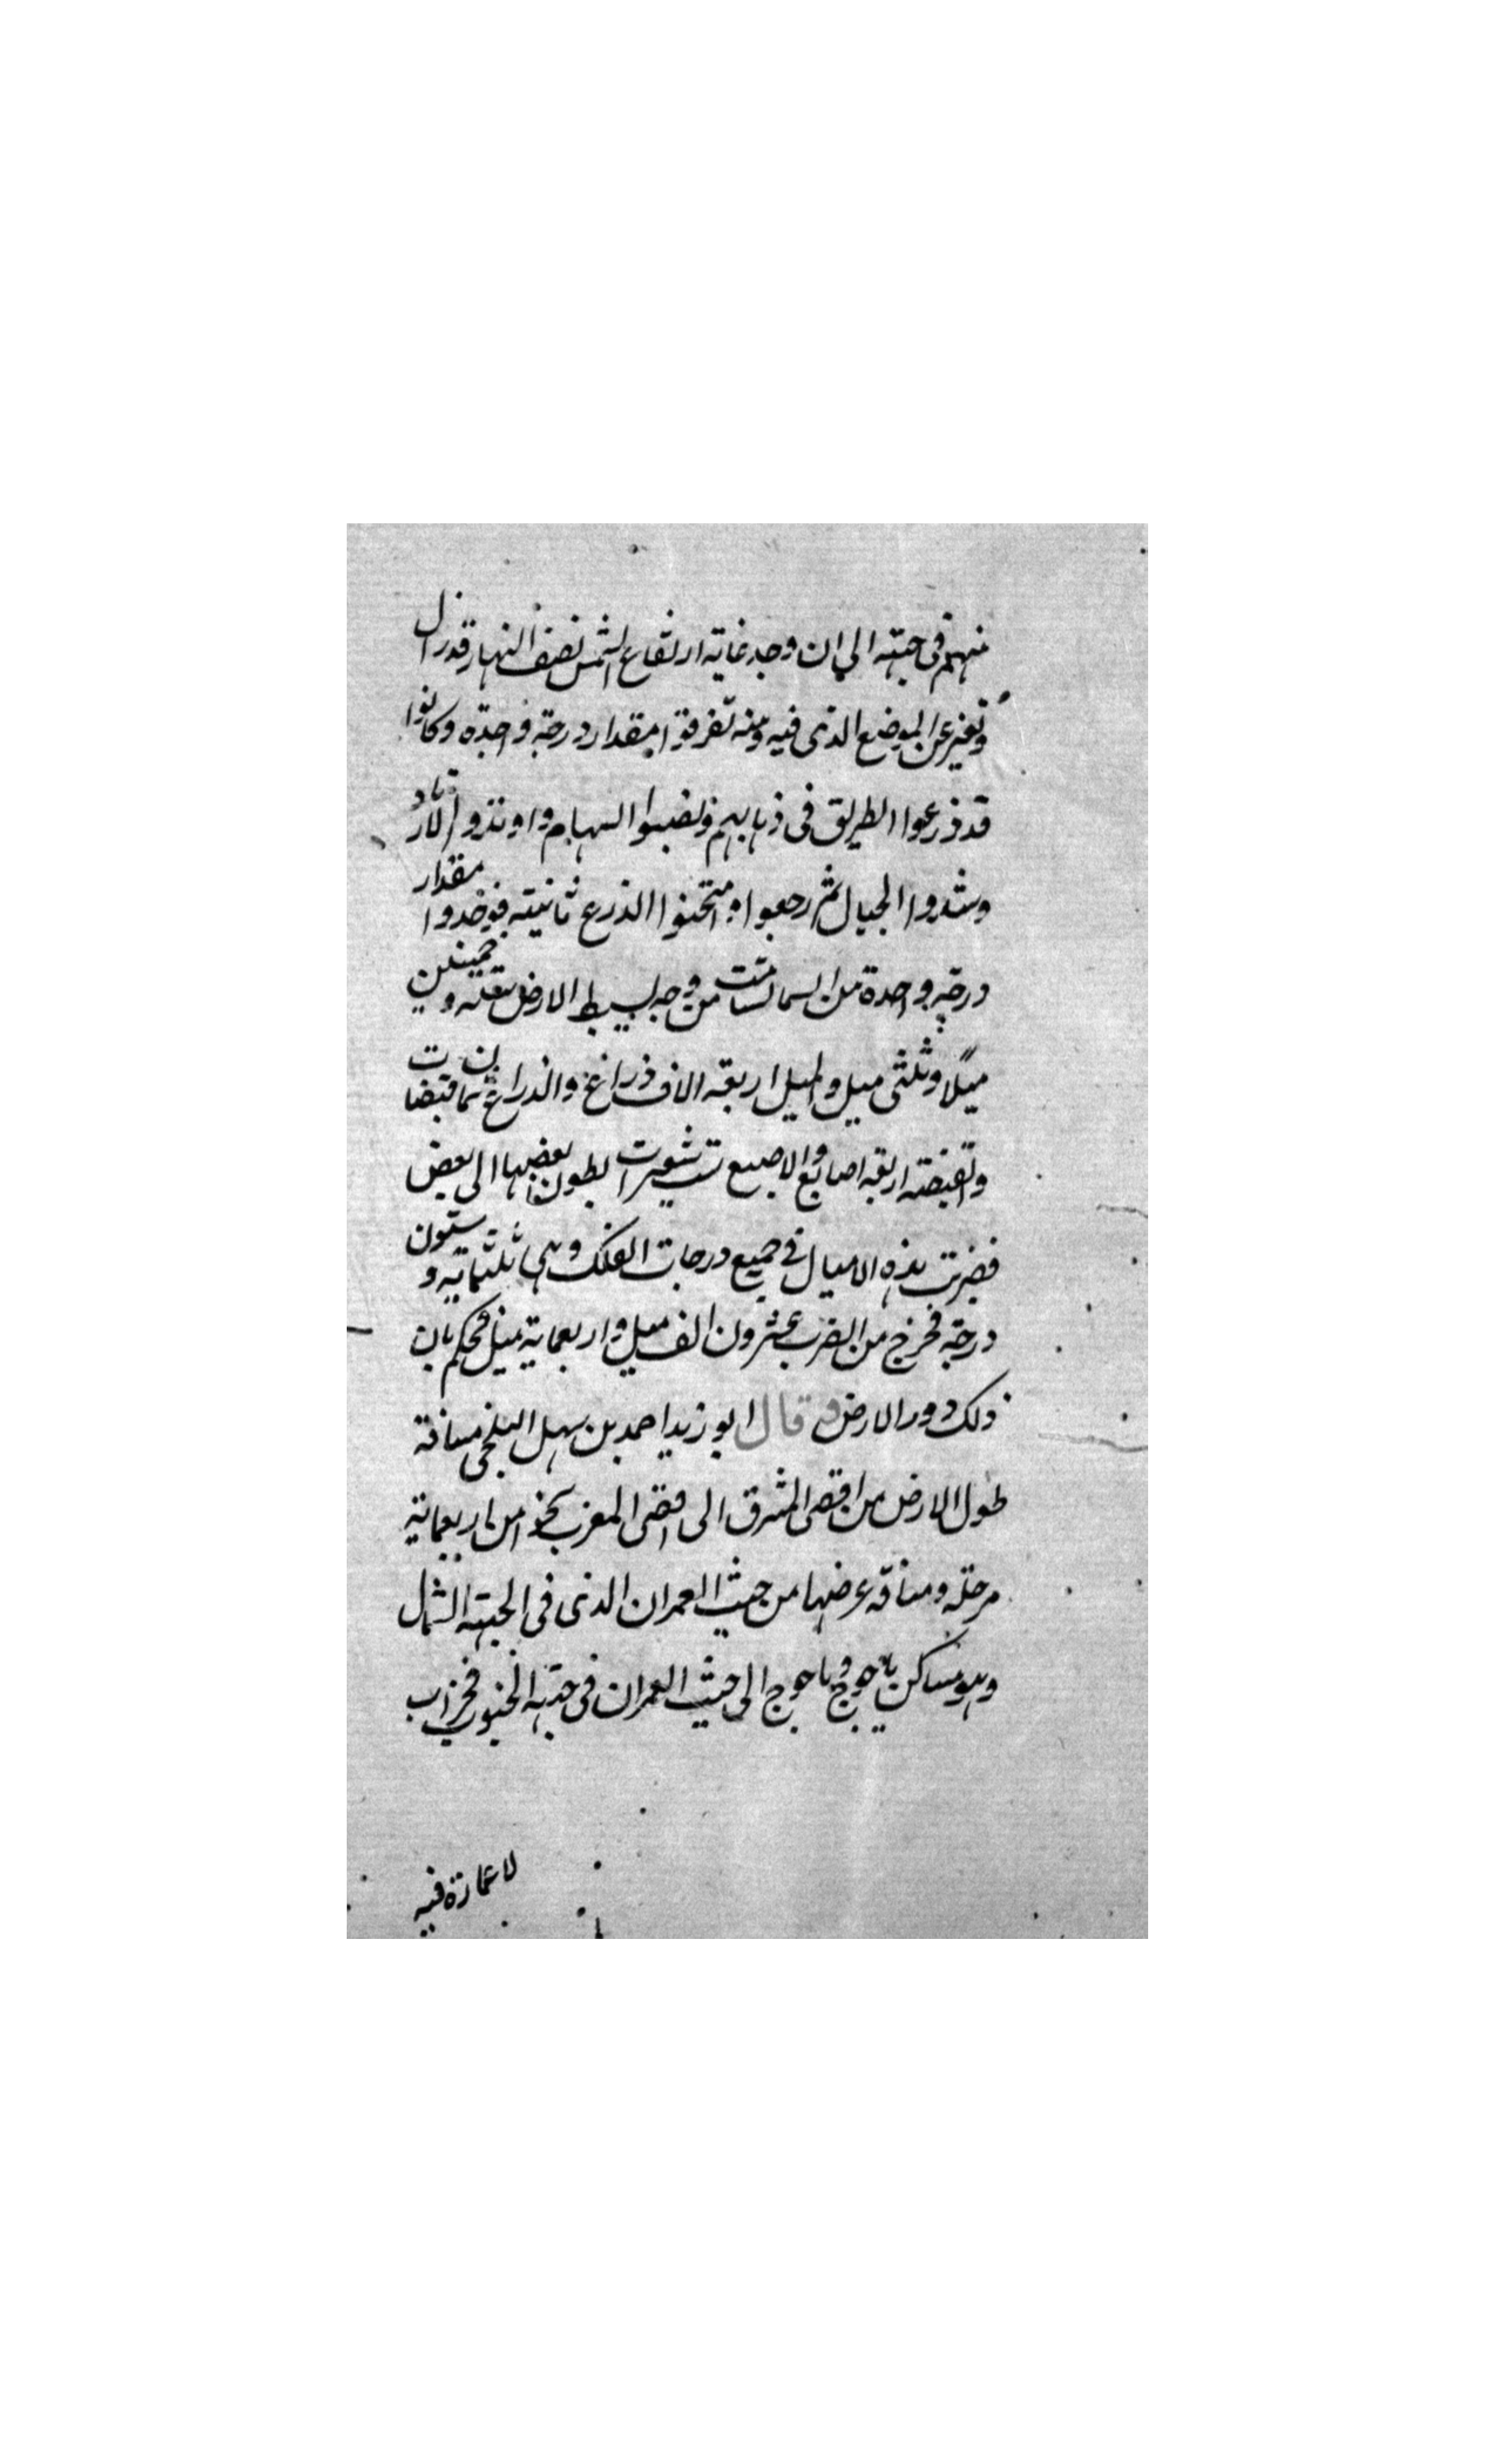 منهم فى جهته الى ان وجد غاية ارتفاع الشمس نصف النهار قد زال
وتغير عن الموضع الذى فيه ومنه تفرقوا بمقدار درجة واحدة وكانوا
قد ذرعوا الطريق فى ذهابهم ونصبوا السهام واوتدوا الاوتاد
وشدوا الحبال ثم رجعوا وامتحنوا الذرع ثانية فوجدوا مقدار
درجة واحدة من السما سامتت من وجه بسيط الارض ستة وخمسين
ميلا وثلثى ميل والميل اربعة الاف ذراع والذراع ثمان قبضات
والقبضة اربعة اصابع والاصبع ست شعيرات بطون بعضها الى بعض
فضربت هذه الاميال فى جميع درجات الفلك وهى ثلثماية وستون
درجة فخرج من الضرب عشرون الف ميل واربعماية ميل فحكم بان
ذلك دور الارض وقال ابو زيد احمد بن سهل البلخى مسافة
طول الارض من اقصى المشرق الى اقصى المغرب نحوا من اربعماية
مرحلة ومسافة عرضها من حيث العمران الذى فى الجهة الشمال
وهو مساكن ياجوج وماجوج الى حيث العمران فى جهة الجنوب فخراب
لا عمارة فيه